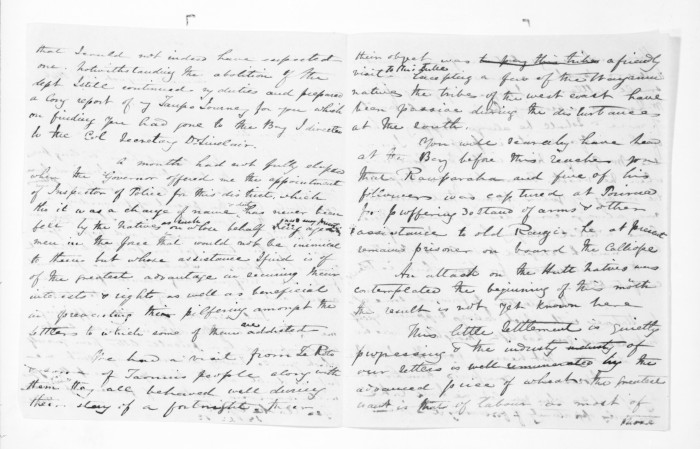 that I could not indeed have expected
one. Notwithstanding the abolition of the
dept I still continued my duties and prepared
a long report of my Journey for you which
on finding you had gone to the Bay I directed
to the Col Secretary Dr Sinclair.
A month had not fully elapsed
when the Governor offered me the appointment
of Inspector of Police for this district, which
tho it was a change of name has never been
felt by the Natives on whose behalf
men in the face that would not be inimical
to them but whose assistance I find is of
of the greatest advantage in securing their
interests & rights as well as beneficial
in preventing their pilfering amongst the
settlers to which some of them are addicted
We had a visit from Te
& some of people along with
them they all behaved well during
their stay of a fortnight their
their object was to pay this tribe a friendly
visit to this tribe
Excepting a few of the Wanganui
natives the tribes of the west coast have
been passive during the disturbances
at the south.
You will scarcely have heard
at the Bay before this reaches you
that Rauparaha and five of his
followers was captured at Porirua
for proffering 30 stand of arms & other
assistance to old Rangi. he at present
remains prisoner on board the Calliope
An attack on the Hutt Natives was
contemplated the beginning of the month
the result is not yet known here
This little settlement is quietly
progressing & the industry industry of
our settlers is well remunerated by the
advanced price of wheat the greatest
want is that of labour as most of